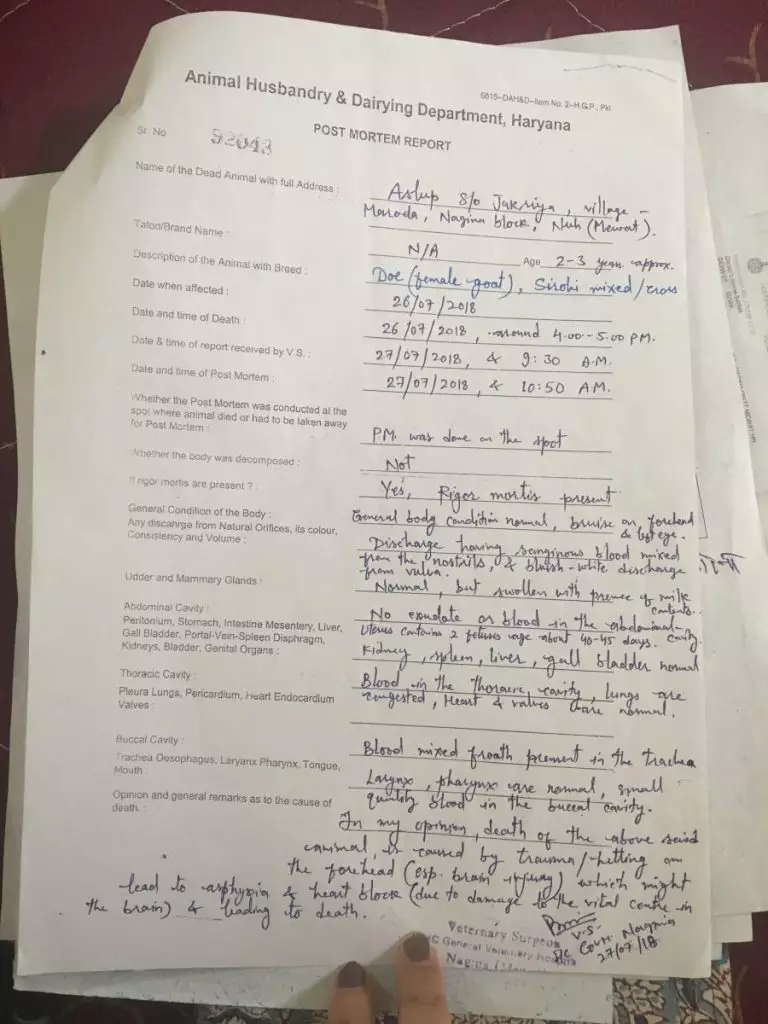 6815—DAH&D—Item No. 2—H.G.P., Pkl.
Animal Husbandry & Dairying Department, Haryana
POST MORTEM REPORT
Sr. No. 92043
Name of the Dead Animal with full Address : Aslup S/o Jakriya, village -
Maroda, Nagina block, Nuh (Mewat).
Tatoo/Brand Name : N/A Age 2-3 years approx.
Description of the Animal with Breed : Doe (female goat), Sirohi mixed/cross
Date when affected : 26/07/2018
Date and time of Death : 26/07/2018, around 4.00-5.00 PM.
Date & time of report received by V.S. : 27/07/2018, & 9:30 A.M.
Date and time of Post Mortem : 27/07/2018, & 10:50 AM.
Whether the Post Mortem was conducted at the
spot where animal died or had to be laken away
for Post Mortem : P.M. was done on the spot
Whether the body was decomposed : Not
If rigor mortis are present ? : Yes, Rigor mortis present
General Condition of the Body : General body condition normal, bruise on forehead
& left eye.
Any discahrge from Natural Orifices, its colour,
Consistency and Volume : Discharge having sanginous blood mixed
from the nostrils, & bluish-white discharge
from vulva.
Udder and Mammary Glands : Normal, but swollen with presence of milk
contents.
Abdominal Cavity : No exudate or blood in the abdominal
cavity.
Peritonium, Stomach, Intestine Mesentery, Liver,
Gall Bladder, Portal-Vein-Spleen Diaphragm,
Kidneys, Bladder, Genital Organs : Uterus contains 2 fetuses age about 40-45 days.
Kidney, spleen, liver, gall bladder normal
Thoracic Cavity : Blood in the thoracic cavity, lungs are
Pleura Lungs, Pericardium, Heart Endocardium
Valves : congested, Heart & valves are normal.
Buccal Cavity : Blood mixed froath present in the trachea
Trachea Oesophagus, Laryanx Pharynx, Tongue,
Mouth : Larynx, pharynx are normal, small
quantity blood in the buccal cavity.
Opinion and general remarks as to the cause of
death. : In my opinion, death of the above said
animal, is caused by trauma/hetting on
the forehead (esp. brain injury) which might
lead to asphyxia & heart block (due to damage to the vital centre in
the brain) & leading to death.
V.S.
Govt. Nagina
27/07/18
Veternary Surgeon
General Veterinary
Nagina